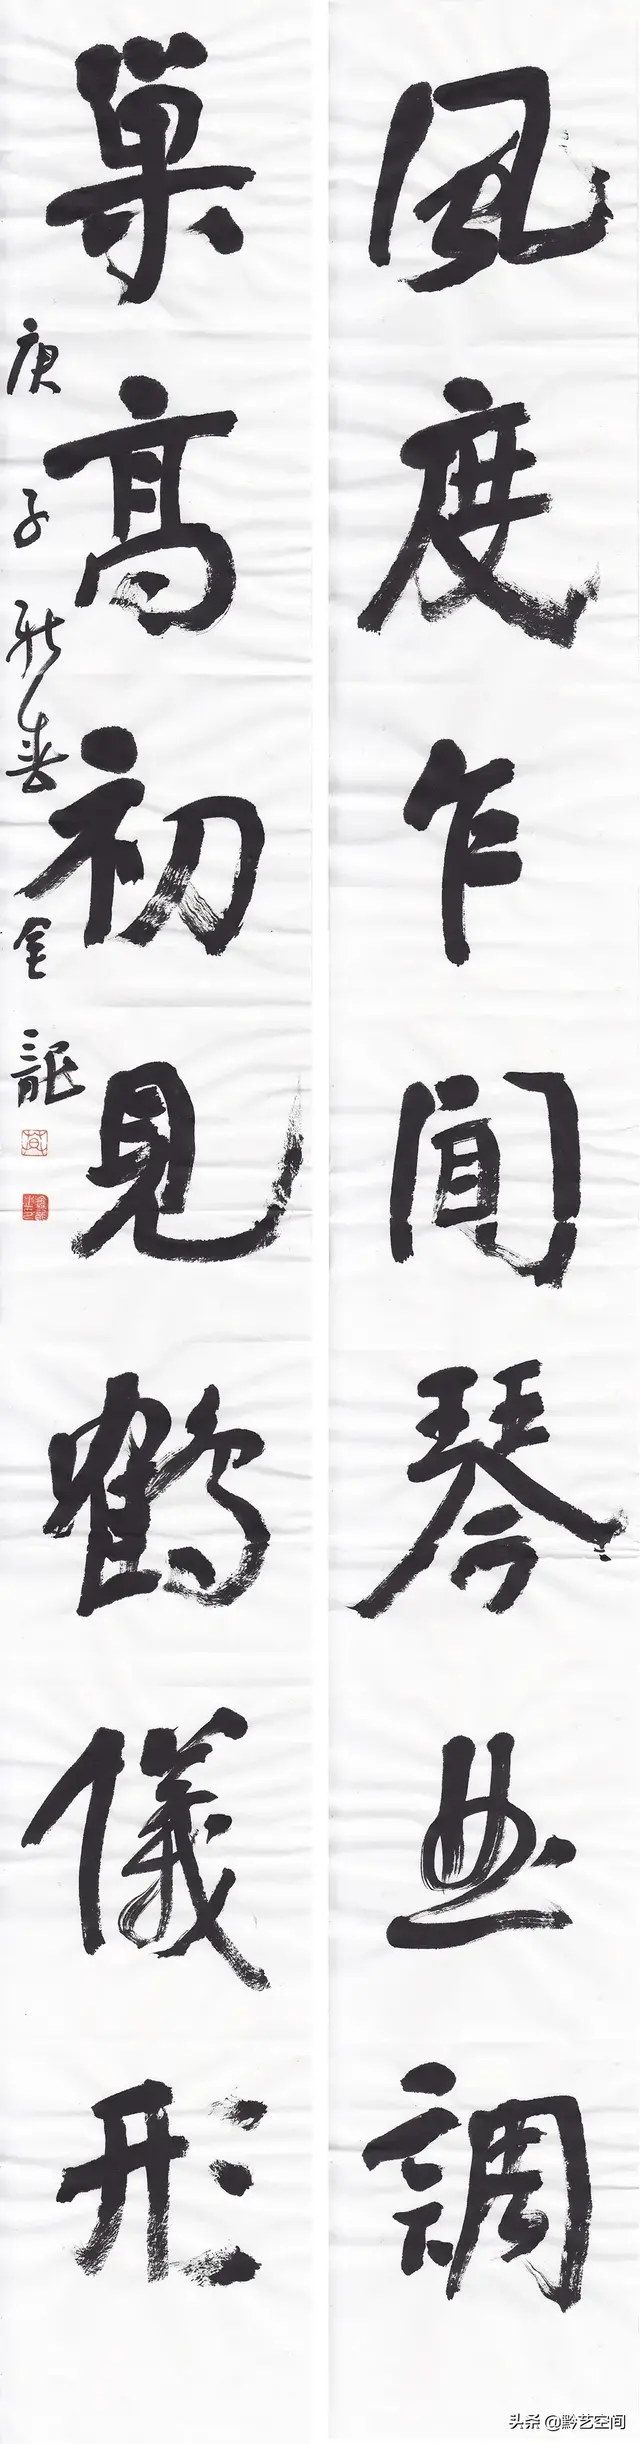 風度乍聞琴曲調
巢高初見鶴儀形
庚子新春金龍
头条 @黔艺空间